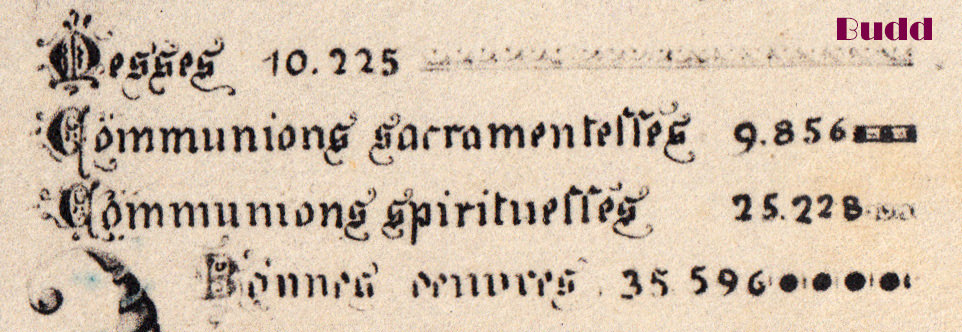 Budd
Messes 10.225
Communions sacramentelles 9.856
Communions spirituelles 25.228
Bonnes oeuvres 35.596